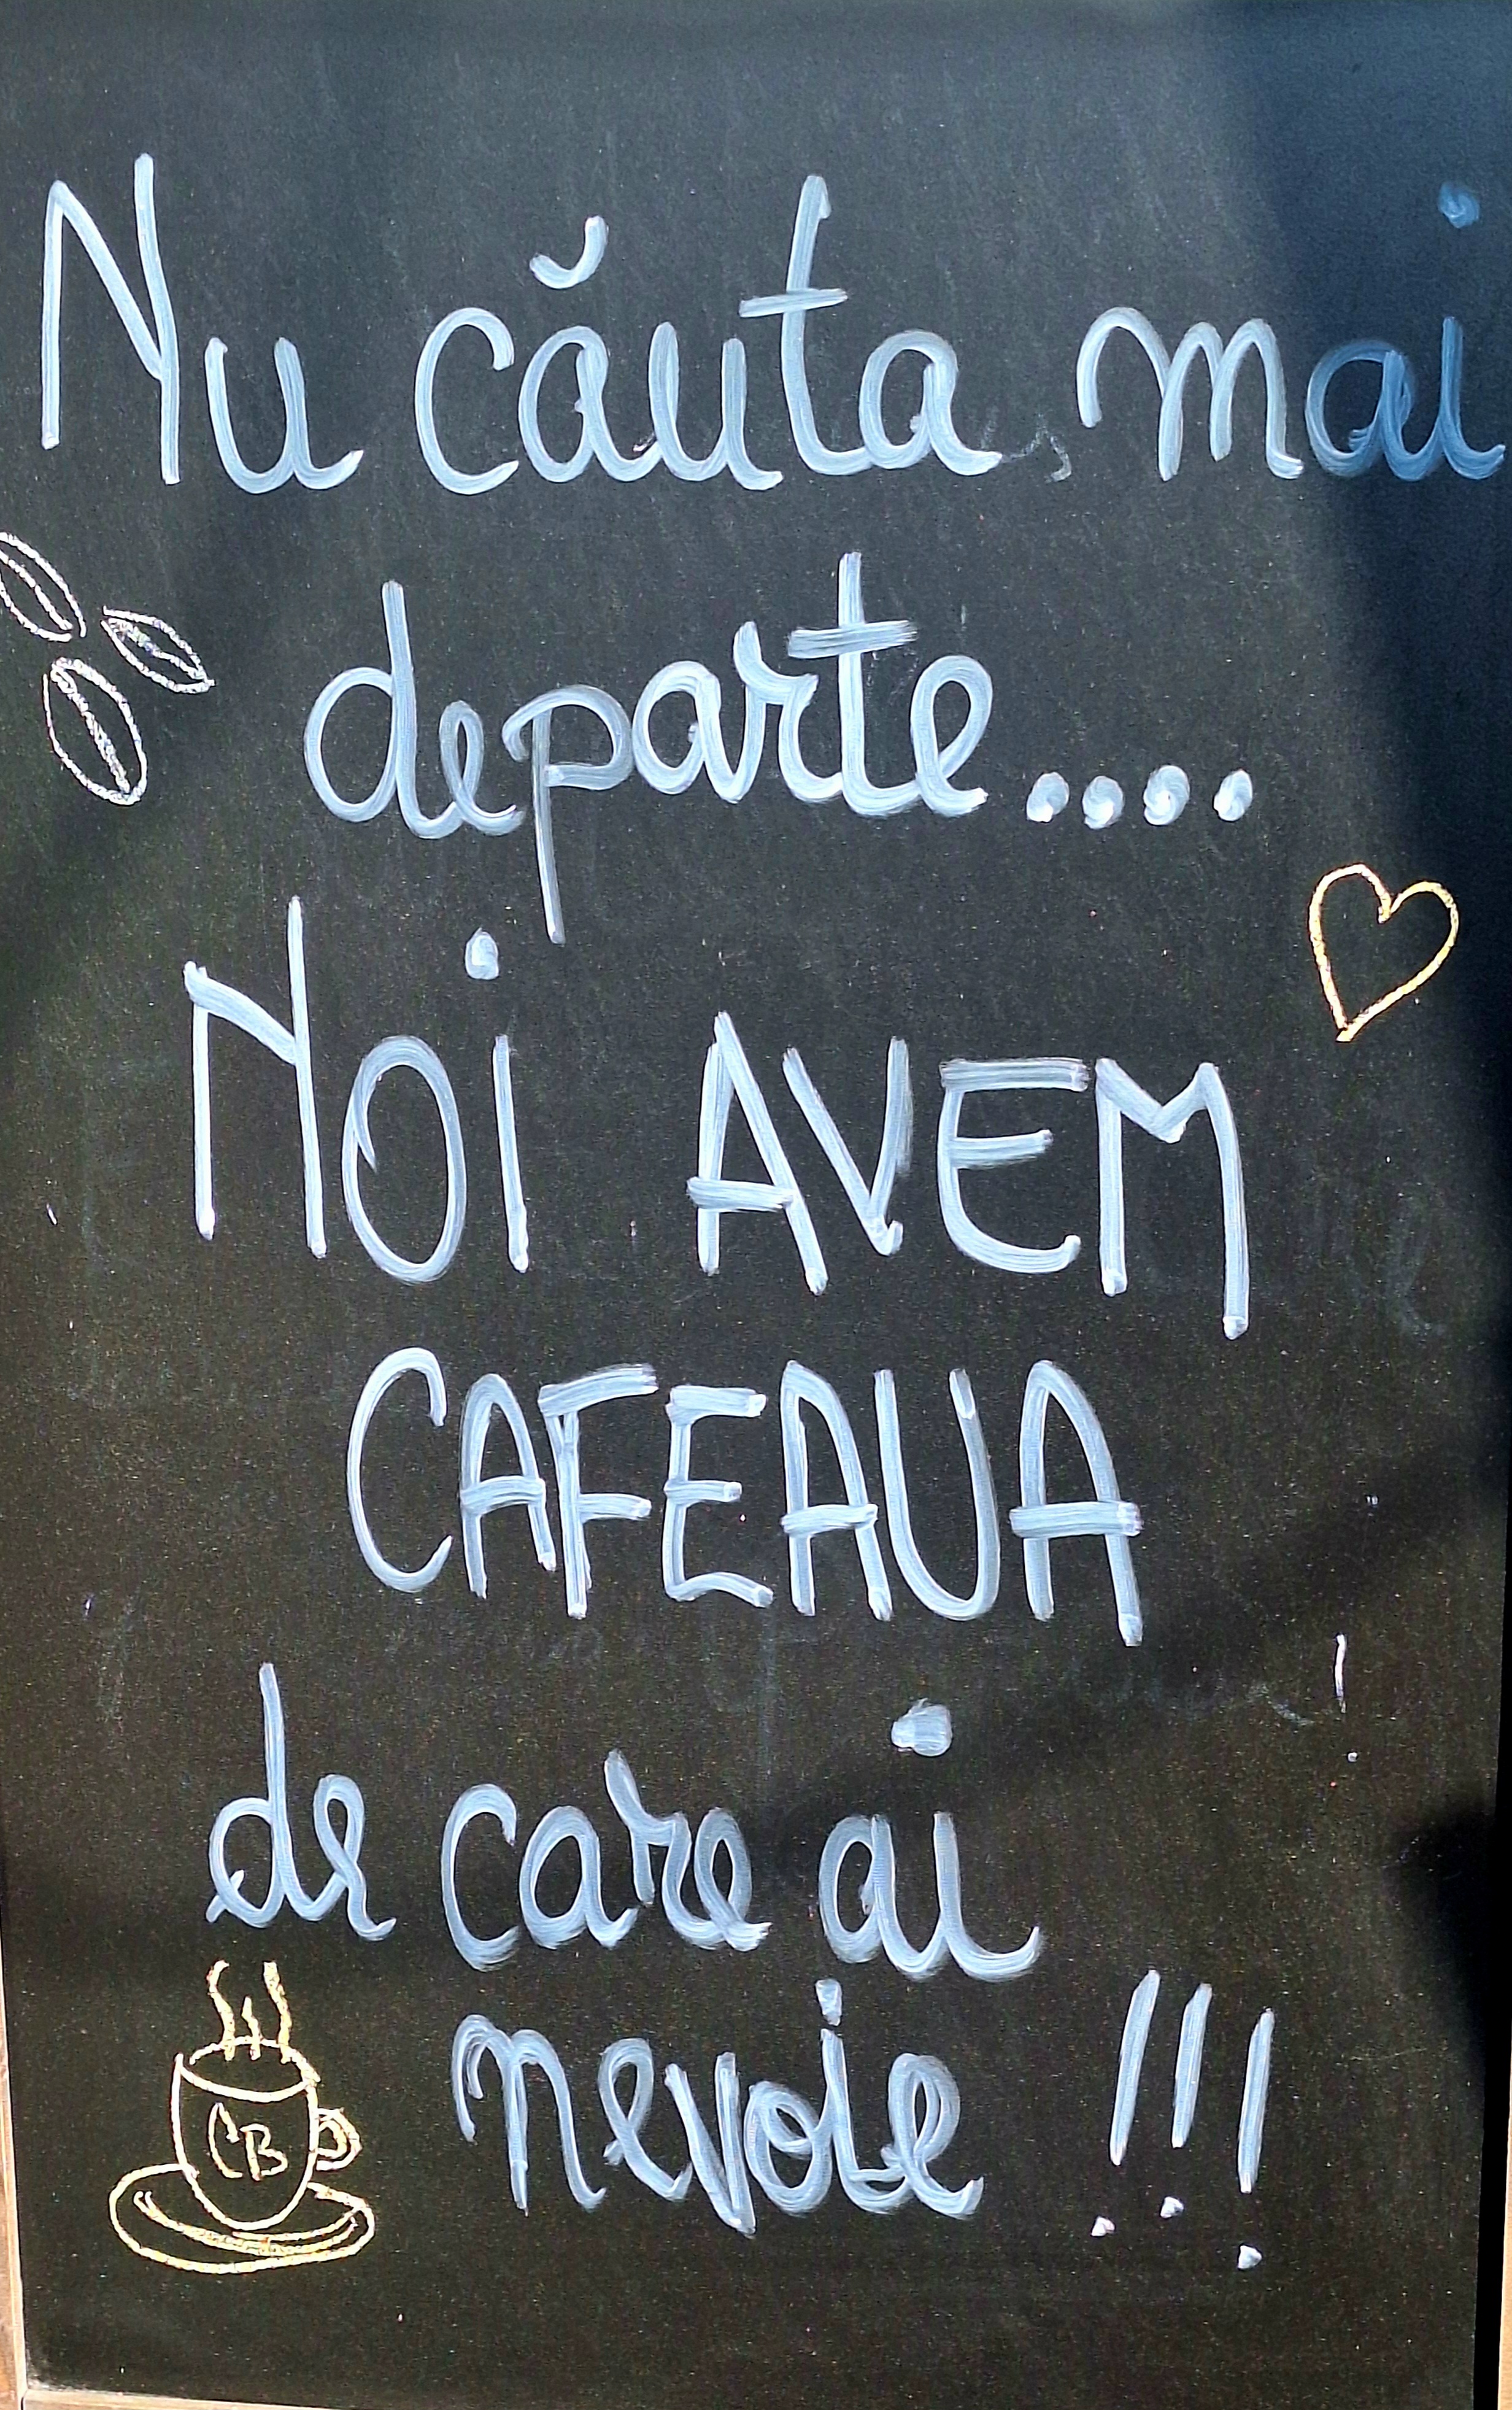 Nu căuta mai
departe....
Noi AVEM
CAFEAUA
de care ai
nevoie !!!
CB